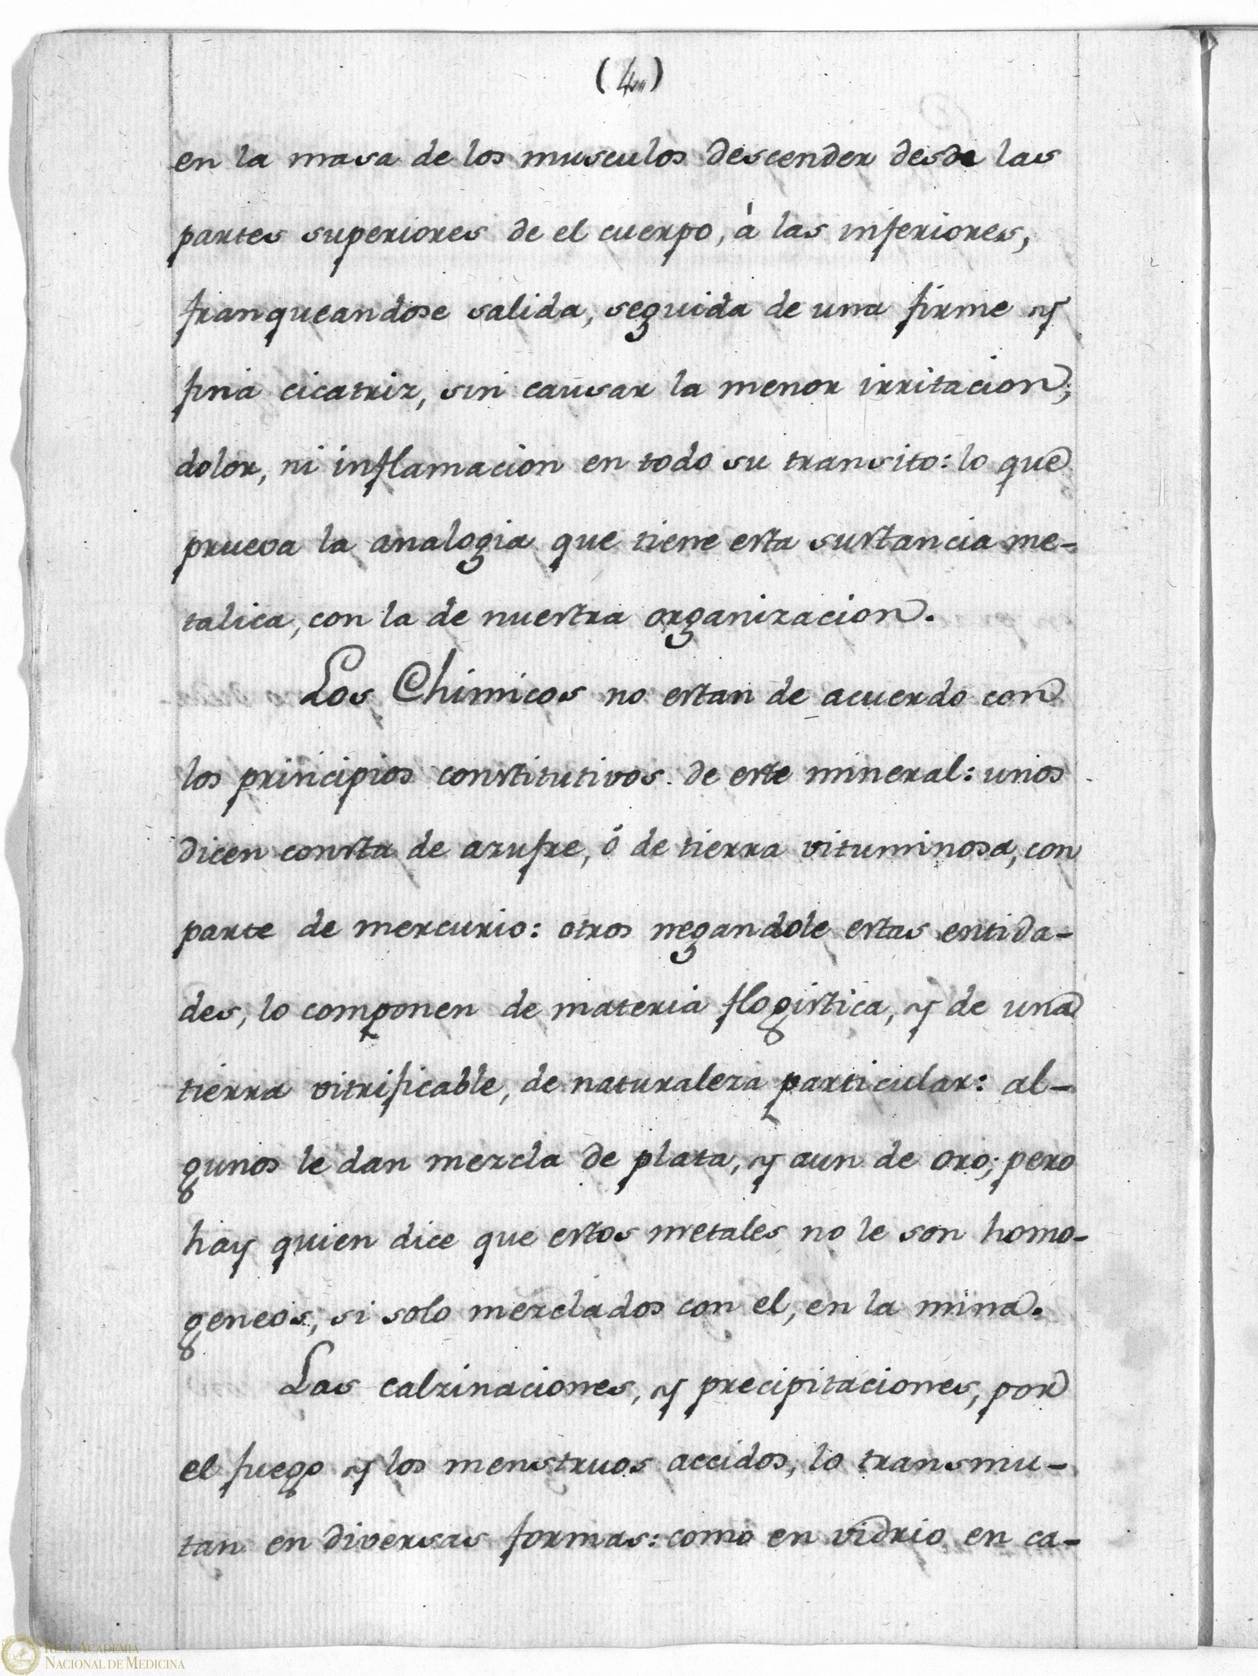 (4)
en la masa de los musculos descender desde las
partes superiores de el cuerpo, à las inferiores,
franqueandose salida, seguida de una firme y
fina cicatriz, sin causar la menor irritacion,
dolor, ni inflamacion en todo su transito: lo que
prueva la analogia que tiene esta sustancia me-
talica, con la de nuestra organizacion.
Los Chimicos no estan de acuerdo con
los principios constitutivos de este mineral: unos
dicen consta de azufre, ó de tierra vituminosa, con
parte de mercurio: otros negandole estas entida-
des, lo componen de materia flogistica, y de una
tierra vitrificable, de naturaleza particular: al-
gunos le dan mezcla de plata, y aun de oro; pero
hay quien dice que estos metales no le son homo-
geneos, si solo mezclados con el, en la mina.
Las calzinaciones, y precipitaciones, por
el fuego y los menstruos accidos, lo transmu-
tan en diversas formas: como en vidrio en ca-
REAL ACADEMIA
NACIONAL DE MEDICINA